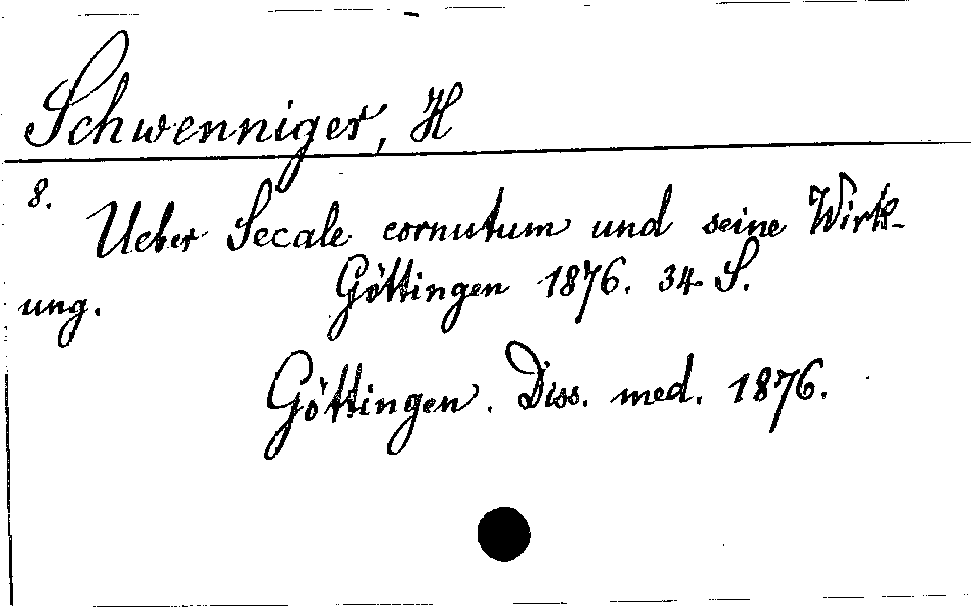 Schwenniger, H
8.
Ueber Secale cornutum und seine Wirk-
ung. Göttingen 1876. 34 S.
Göttingen. Diss. med. 1876.